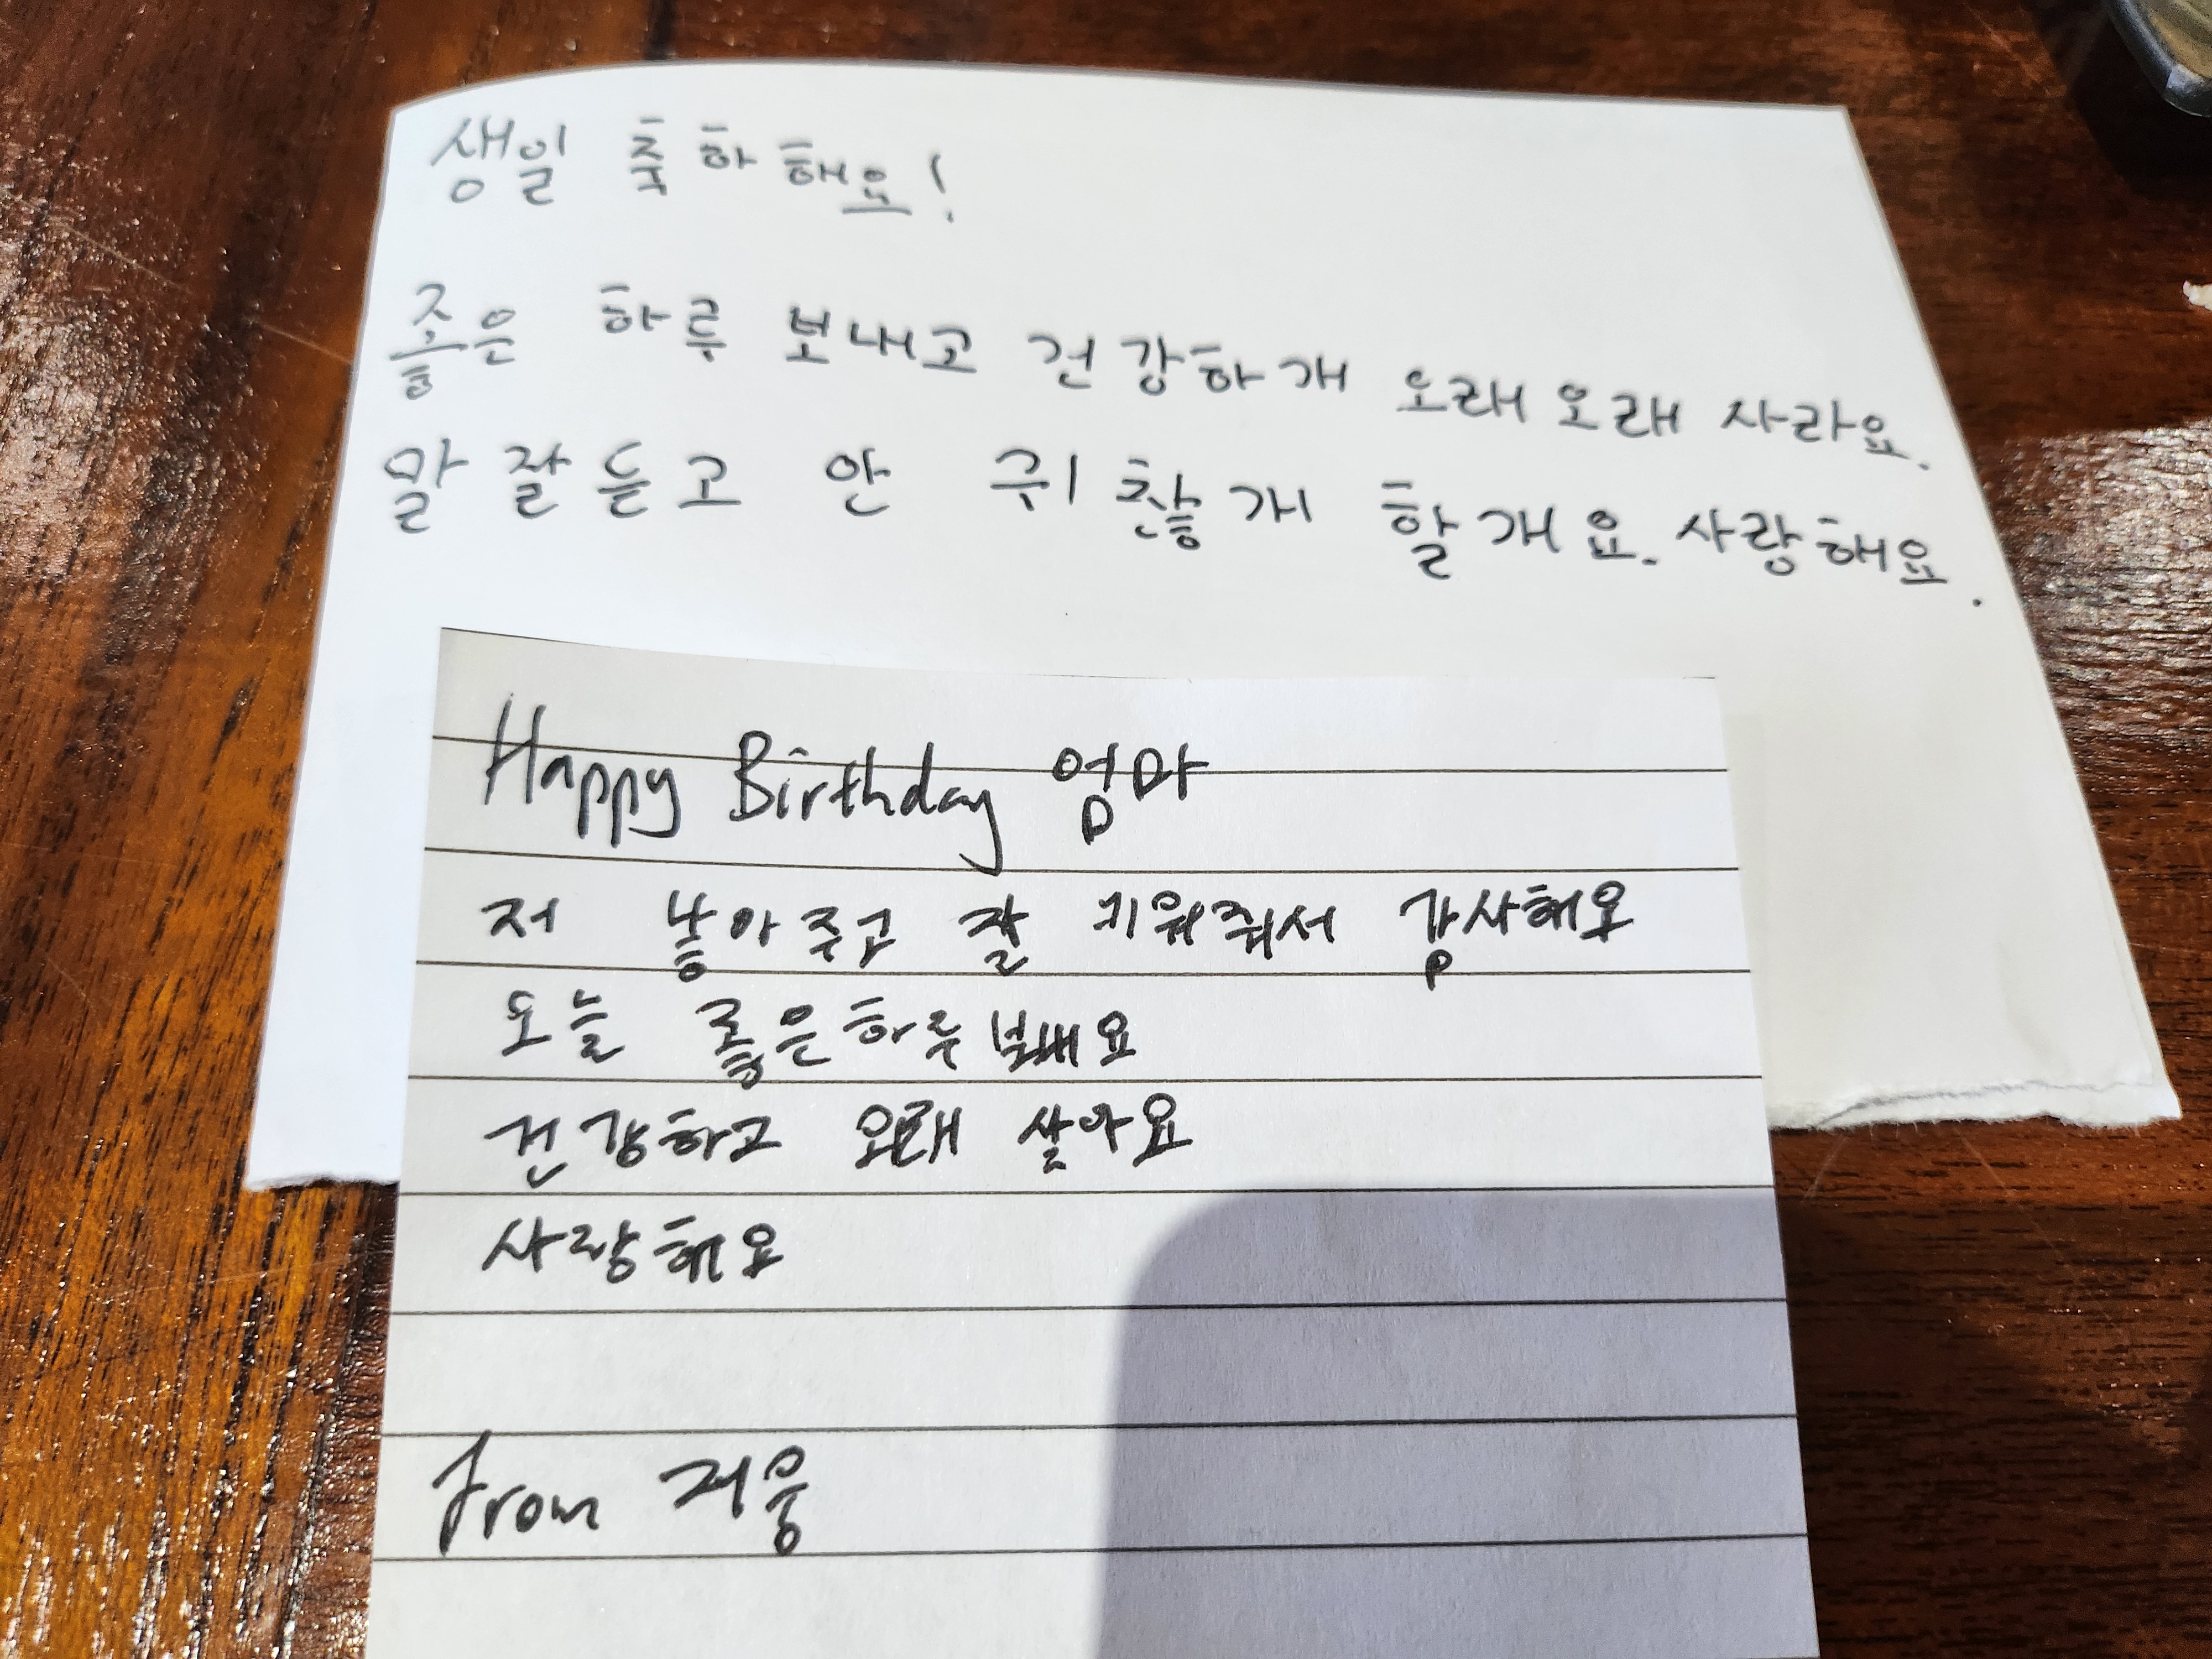 생일 축하해요!
좋은 하루 보내고 건강하개 오래오래 사라요.
말 잘 듣고 안 귀찮개 할개요. 사랑해요.
Happy Birthday 엄마
저 낳아주고 잘 키워줘서 감사해요
오늘 좋은하루 보내요
건강하고 오래 살아요
사랑해요
from